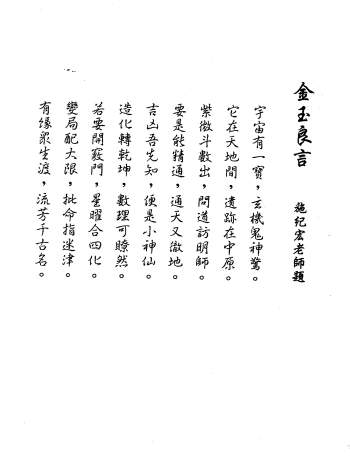 金玉良言
施纪宏老師題
宇宙有一寶，玄機鬼神驚。
它在天地間，遺跡在中原。
紫微斗數出，問道訪明師。
要是能精通，通天又徹地。
吉凶吾先知，便是小神仙。
造化轉乾坤，數理可瞭然。
若要開竅門，星曜合四化。
變局配大限，批命指迷津。
有緣眾生渡，流芳千古名。